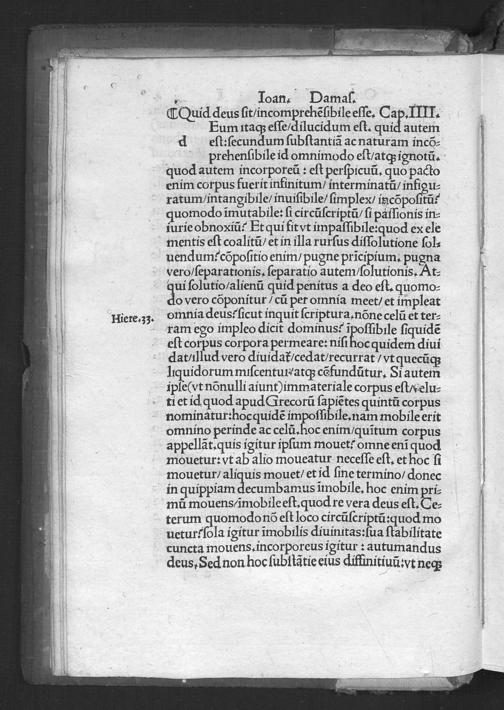 Ioan. Damas.
¶Quid deus sit/incomprehēsibile esse. Cap.IIII.
d Eum itaqꝫ esse/dilucidum est. quid autem
est:secundum substantiā ac naturam incō-
prehensibile id omnimodo est/atqꝫ ignotū.
quod autem incorporeū : est perspicuū. quo pacto
enim corpus fuerit infinitum/ interminatū/ infigu-
ratum/intangibile/ inuisibile/ simplex/ incōpositū?
quomodo imutabile: si circūscriptū/ si passionis in-
iurie obnoxiū? Et qui fit vt impassibile:quod ex ele
mentis est coalitū/ et in illa rursus dissolutione sol-
uendum? cōpositio enim/ pugne pricipium. pugna
vero/separationis. separatio autem/solutionis. At-
qui solutio/alienū quid penitus a deo est. quomo-
do vero cōponitur/ cū per omnia meet/ et impleat
omnia deus? sicut inquit scriptura. nōne celū et ter-
Hiere.33.
ram ego impleo dicit dominus? īpossibile siquidē
est corpus corpora permeare: nisi hoc quidem diui
dat/illud vero diuidat̄/cedat/recurrat/ vt quecūqꝫ
liquidorum miscentur/atqꝫ cōfundūtur. Si autem
ipse(vt nōnulli aiunt)immateriale corpus est/velu-
ti et id quod apud Grecorū sapiētes quintū corpus
nominatur:hoc quidē impossibile.nam mobile erit
omnino perinde ac celū.hoc enim/quītum corpus
appellāt.quis igitur ipsum mouet? omne enī quod
mouetur:vt ab alio moueatur necesse est. et hoc si
mouetur/ aliquis mouet/ et id sine termino/ donec
in quippiam decumbamus īmobile. hoc enim pri-
mū mouens/īmobile est.quod re vera deus est. Ce-
terum quomodo nō est loco circūscriptū:quod mo
uetur?sola igitur imobilis diuinitas:sua stabilitate
cuncta mouens.incorporeus igitur : autumandus
deus. Sed non hoc substātie eius diffinitiuū:vt neqꝫ